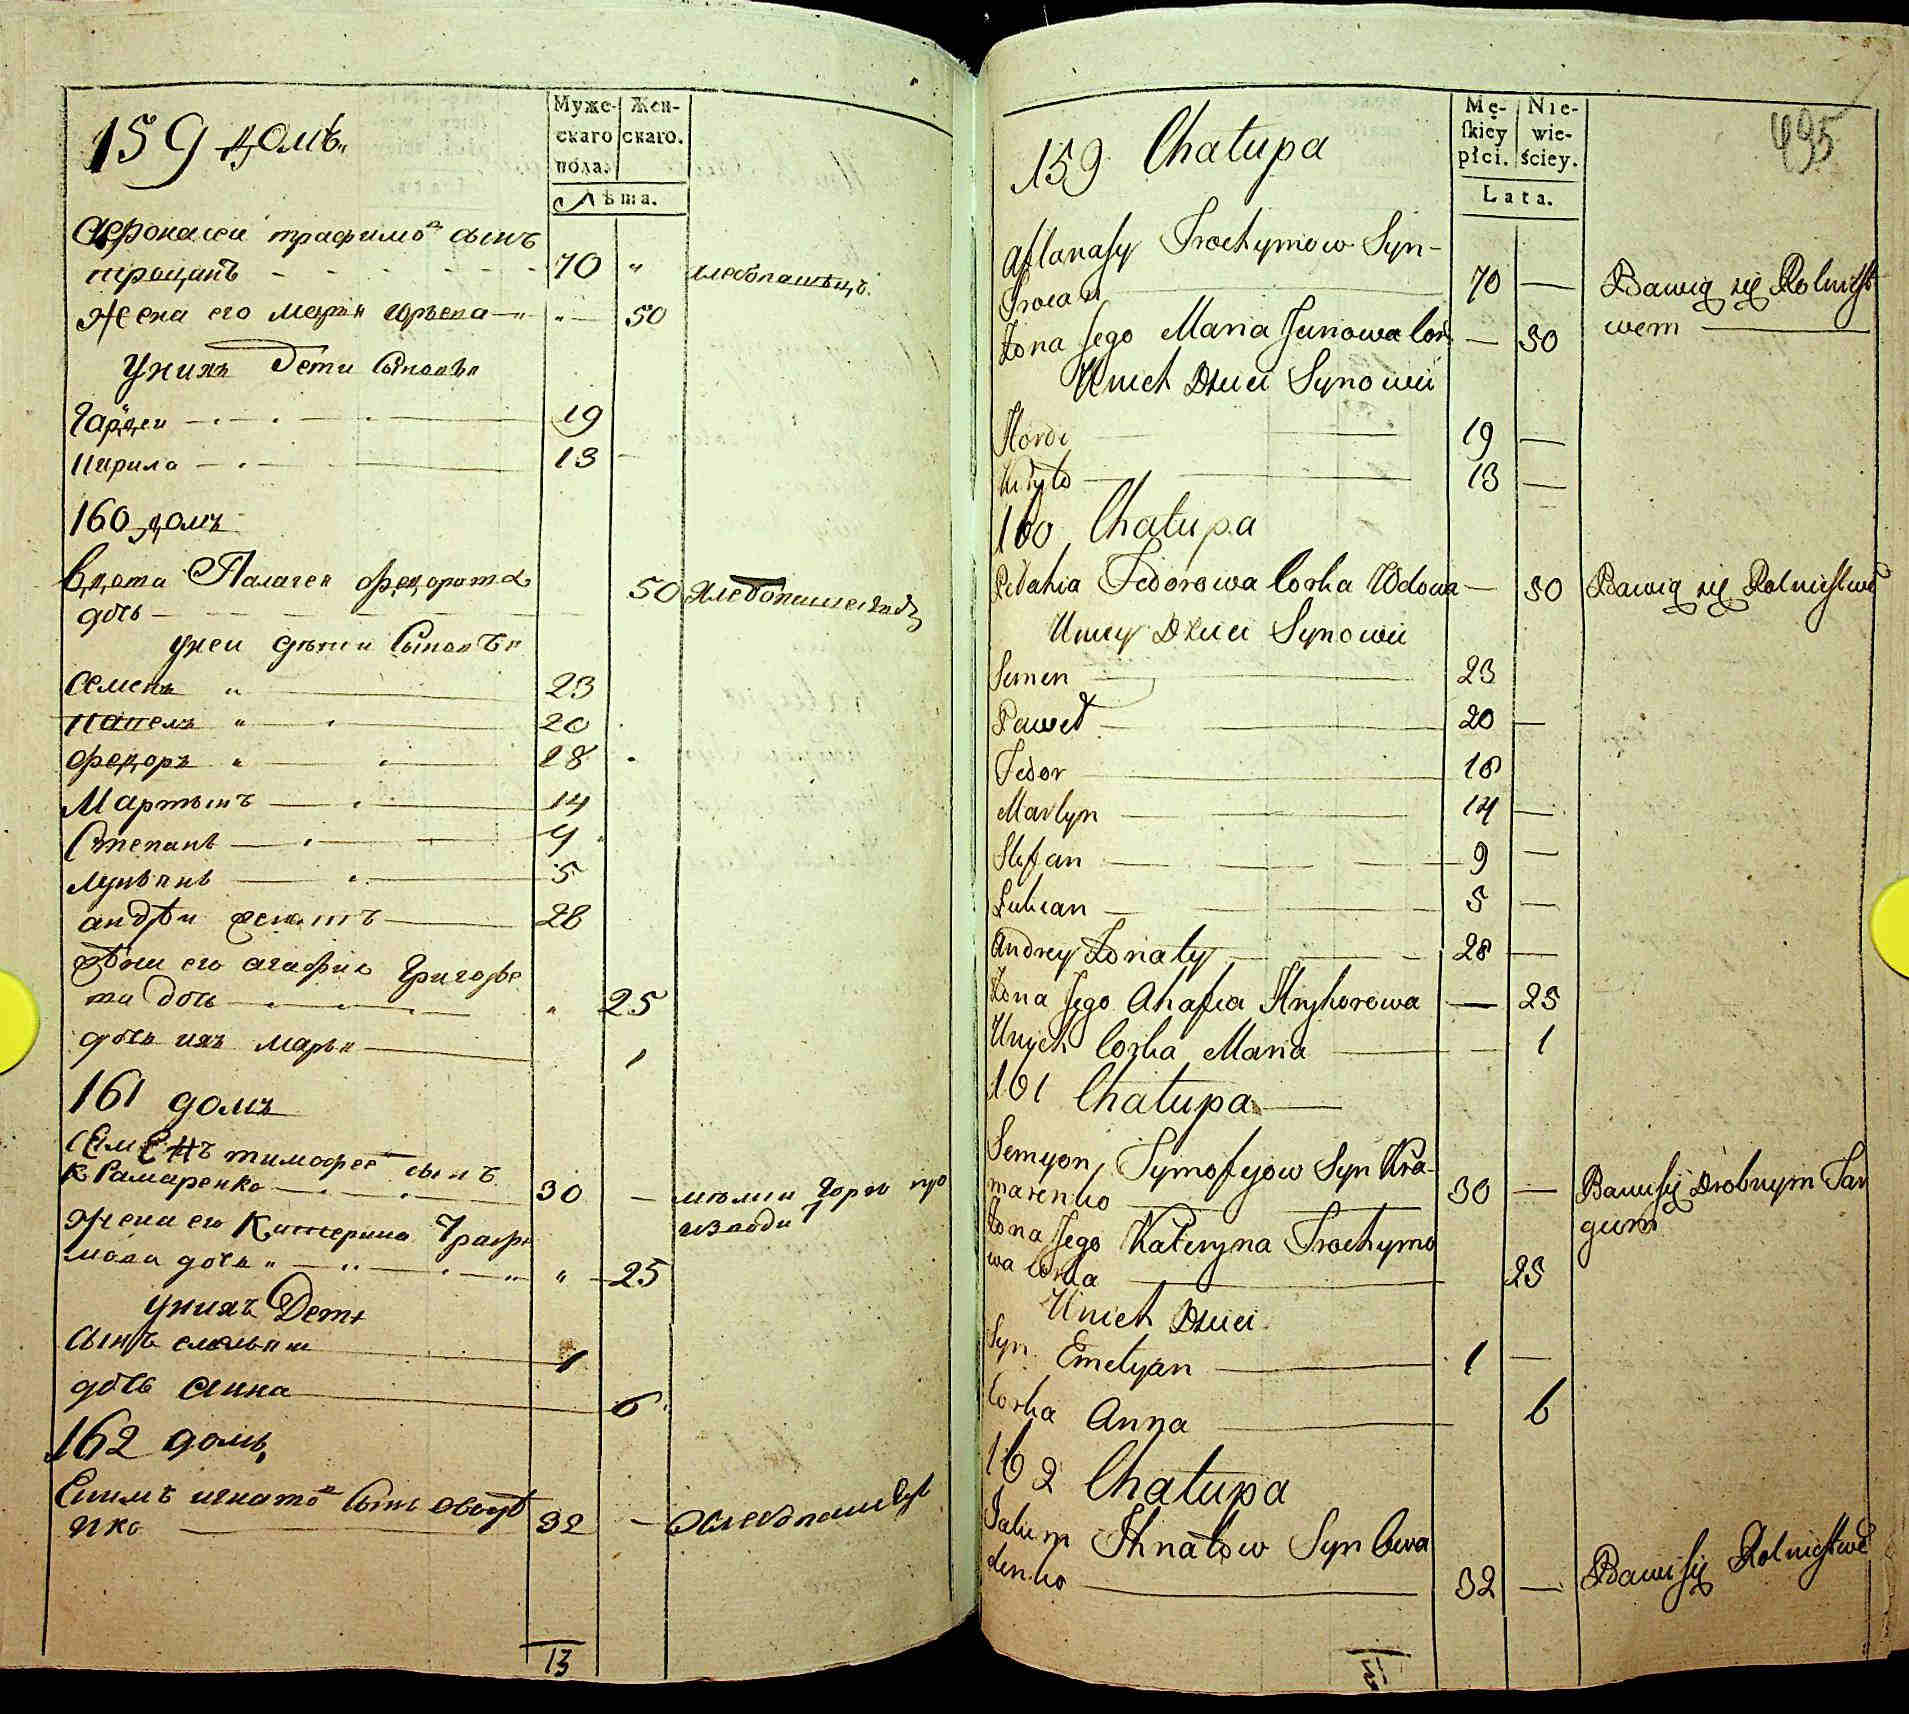 159 домъ
Муже-
скаго
пола.
Жен-
скаго.
Лѣта.
Афонасеи трафимо сынъ
троцанъ 70 " хлебопашецъ
жена его Мария юрьева " 50
У них Дети Сыновья
Гардеи 19
Кирила 13
160 домъ
Вдова Палагея федорова
дочь 50 Хлебопашество
у неи дети Сыновья
Семенъ " 23
Павелъ " 20
Федоръ " 18
Мартынъ 14
Степанъ 9
Лукьянъ 5
андреи женатъ 28
жена его агафия Григорье
ва дочь " 25
дочь их марья 1
161 домъ
Семенъ тимофее сынъ
Крамаренко 30 — мелки торгъ про
изводит
жена его Катерина Трафи
мова дочь " " 25
у нихъ Дети
Сынъ емельян 1
дочь Анна 6
162 домъ
Екимъ игнато Сынъ Сваде
нко 32 — Хлебопашест
13
159 Chałupa
Mę-
skiey
płci.
Nie-
wie-
ściey.
Lata.
495
Aftanasy Trochymow Syn
Trocan 70 — Bawią się Rolnicst
wem
Żona Jego Maria Jurowa Cor — 50
U nich Dzieci Synowii
Hordi 19 —
Kiryło 13 —
160 Chałupa
Pelahia Fedorowa Corka Wdowa — 50 Bawią się Rolnictwe
U niey Dzieci Synowie
Semen 23
Paweł 20 —
Fedor 18
Martyn 14 —
Stefan 9 —
Lukian 5 —
Andrey Żonaty 28 —
Żona Jego Ahafia Hryhorowa — 25
U nych Corka Maria — 1
161 Chałupa
Semyon Tymofyiow Syn Kra-
marenko 30 — Bawi się Drobnym Tar
giem
Żona Jego Kateryna Trochymo
wa Corka 25
U nich Dzieci
Syn Emelyan 1 —
Corka Anna 6
162 Chałupa
Jakim Ihnatow Syn Swa
denko 32 — Bawi się Rolnictwe
13